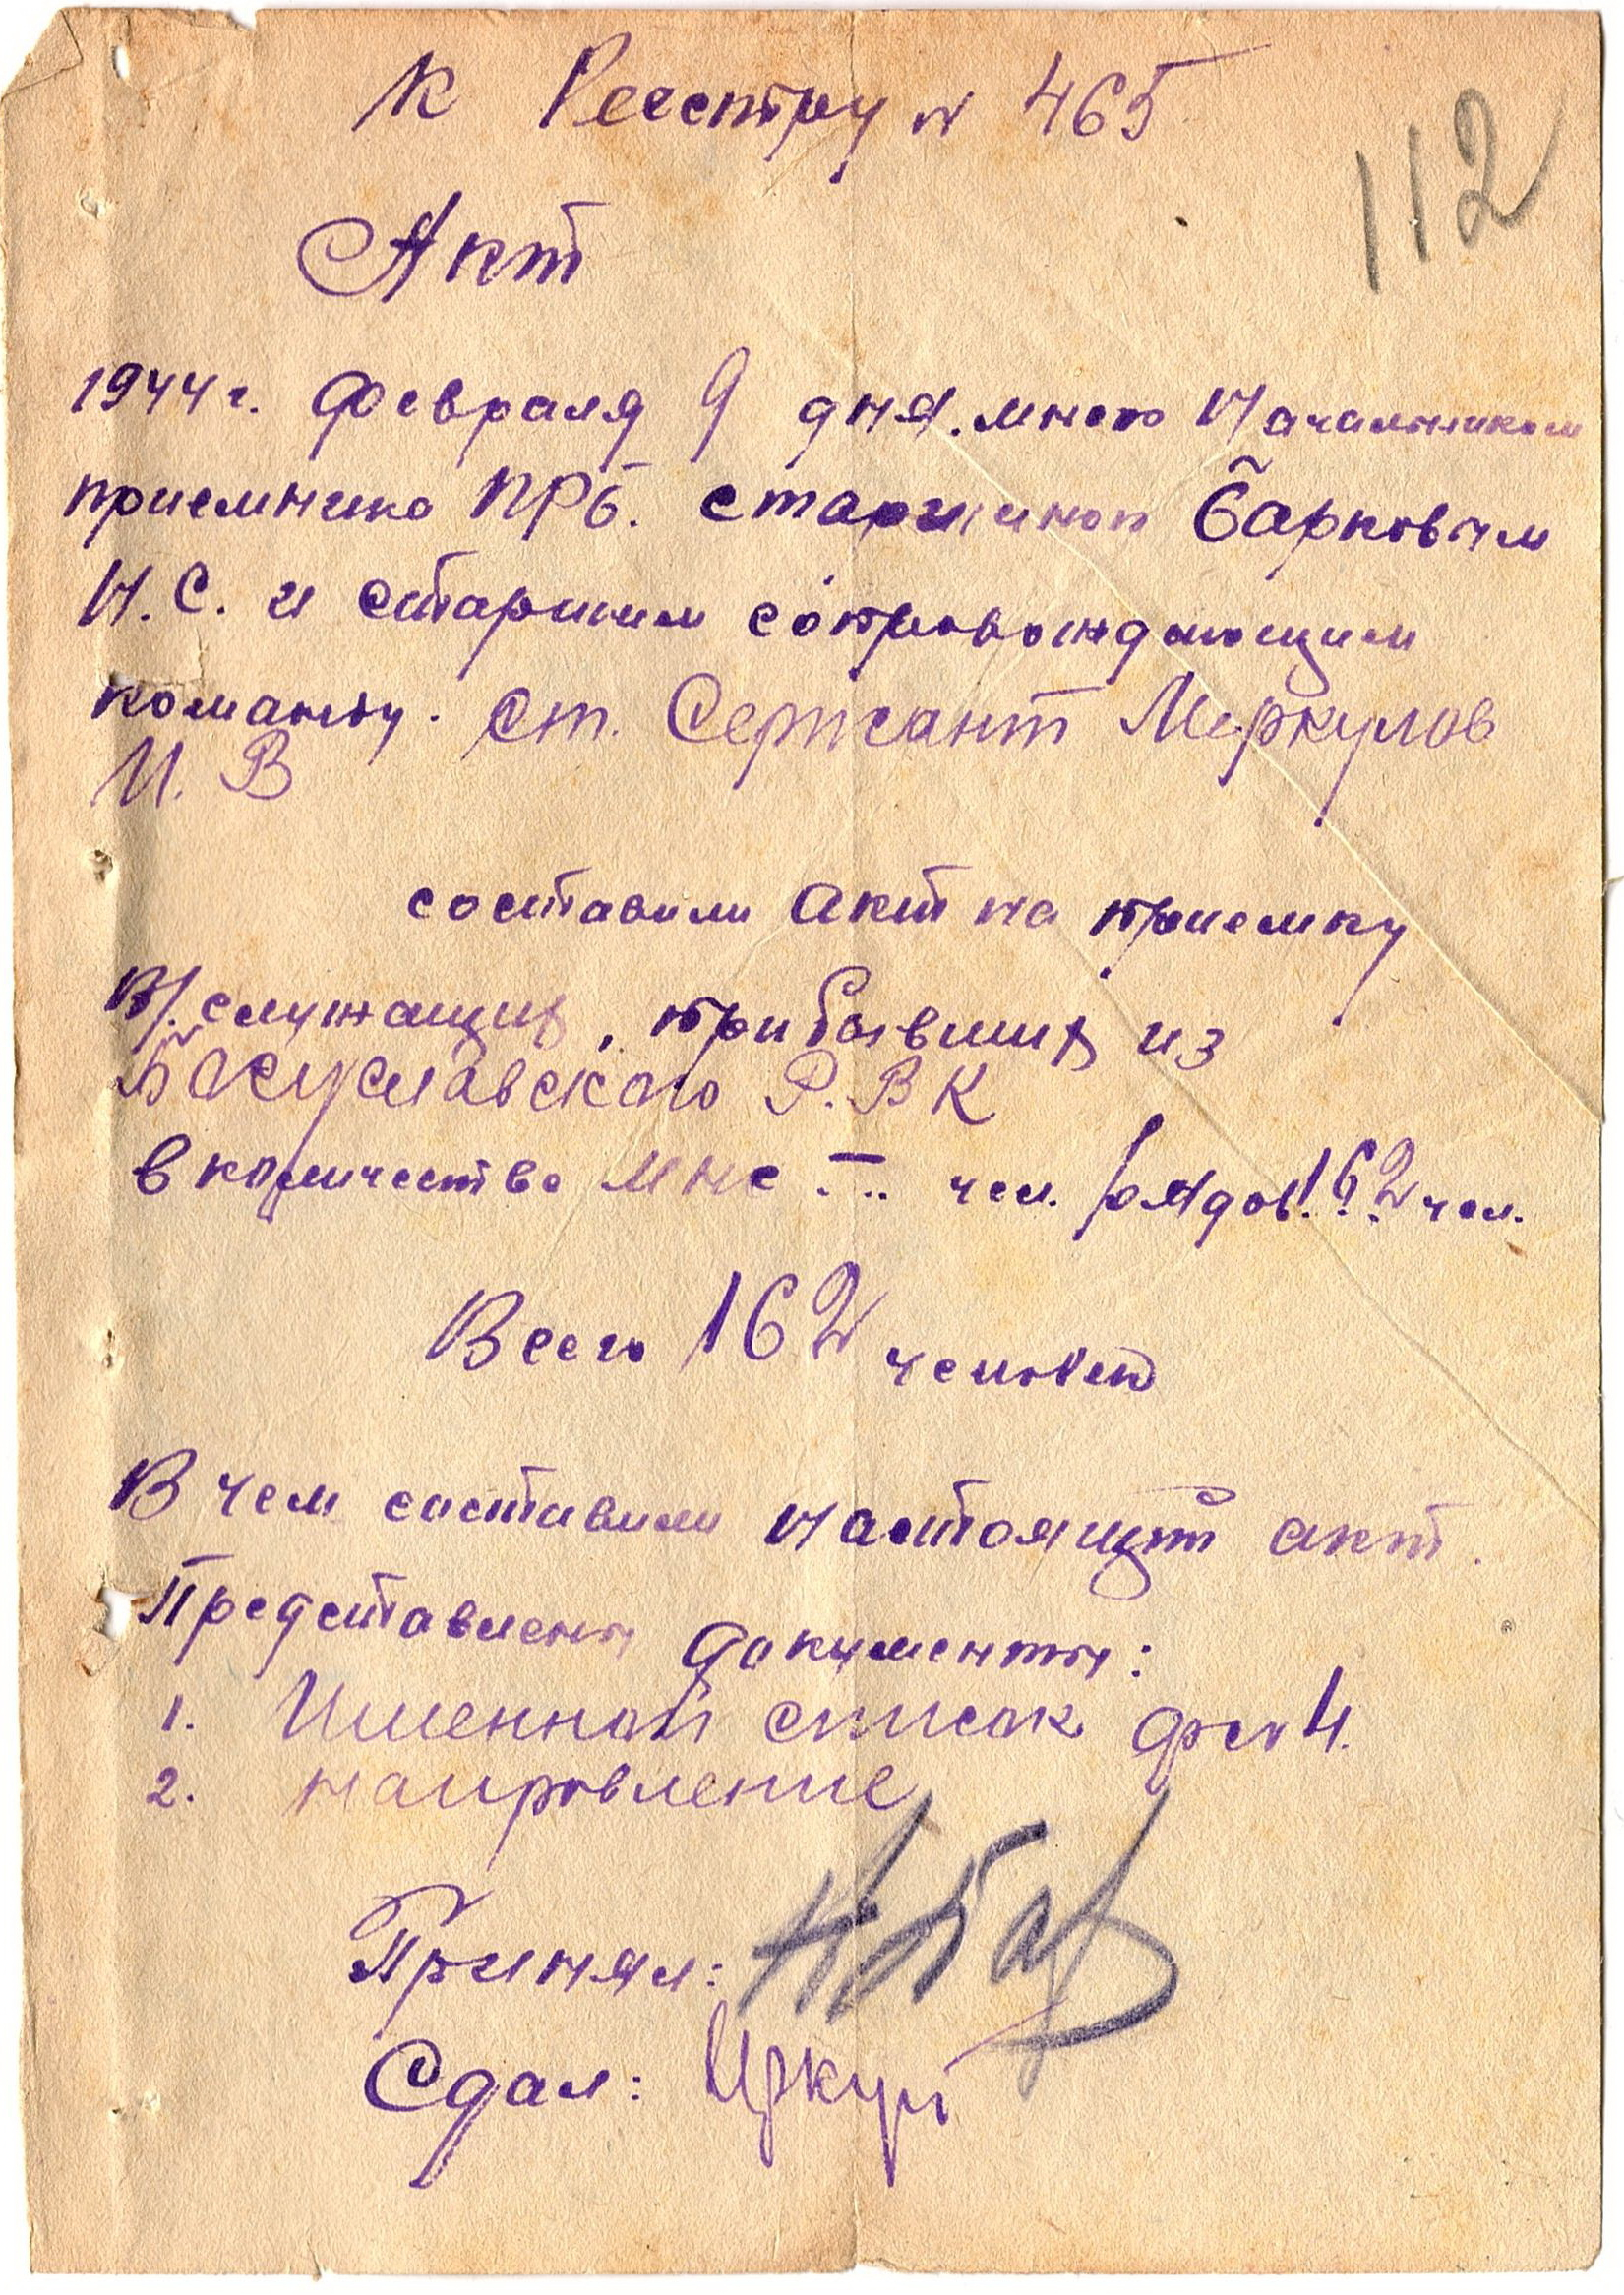 К Реестру № 465
112
Акт
1944 г. февраля 9 дня. мною Начальником
приемника ПРБ. старшиной Барковым
Н. С. и старшим сопровождающим
команду. ст. Сержант Меркулов
И. В
составили акт на приемку
В/служащих, прибывших из
Богуславского Р. В К
в количестве мнс - чел. рядов. 162 чел.
Всего 162 человек
В чем составили настоящий акт.
Представлены документы:
1. Именной список ф № 4.
2. направление
Принял:
Сдал: